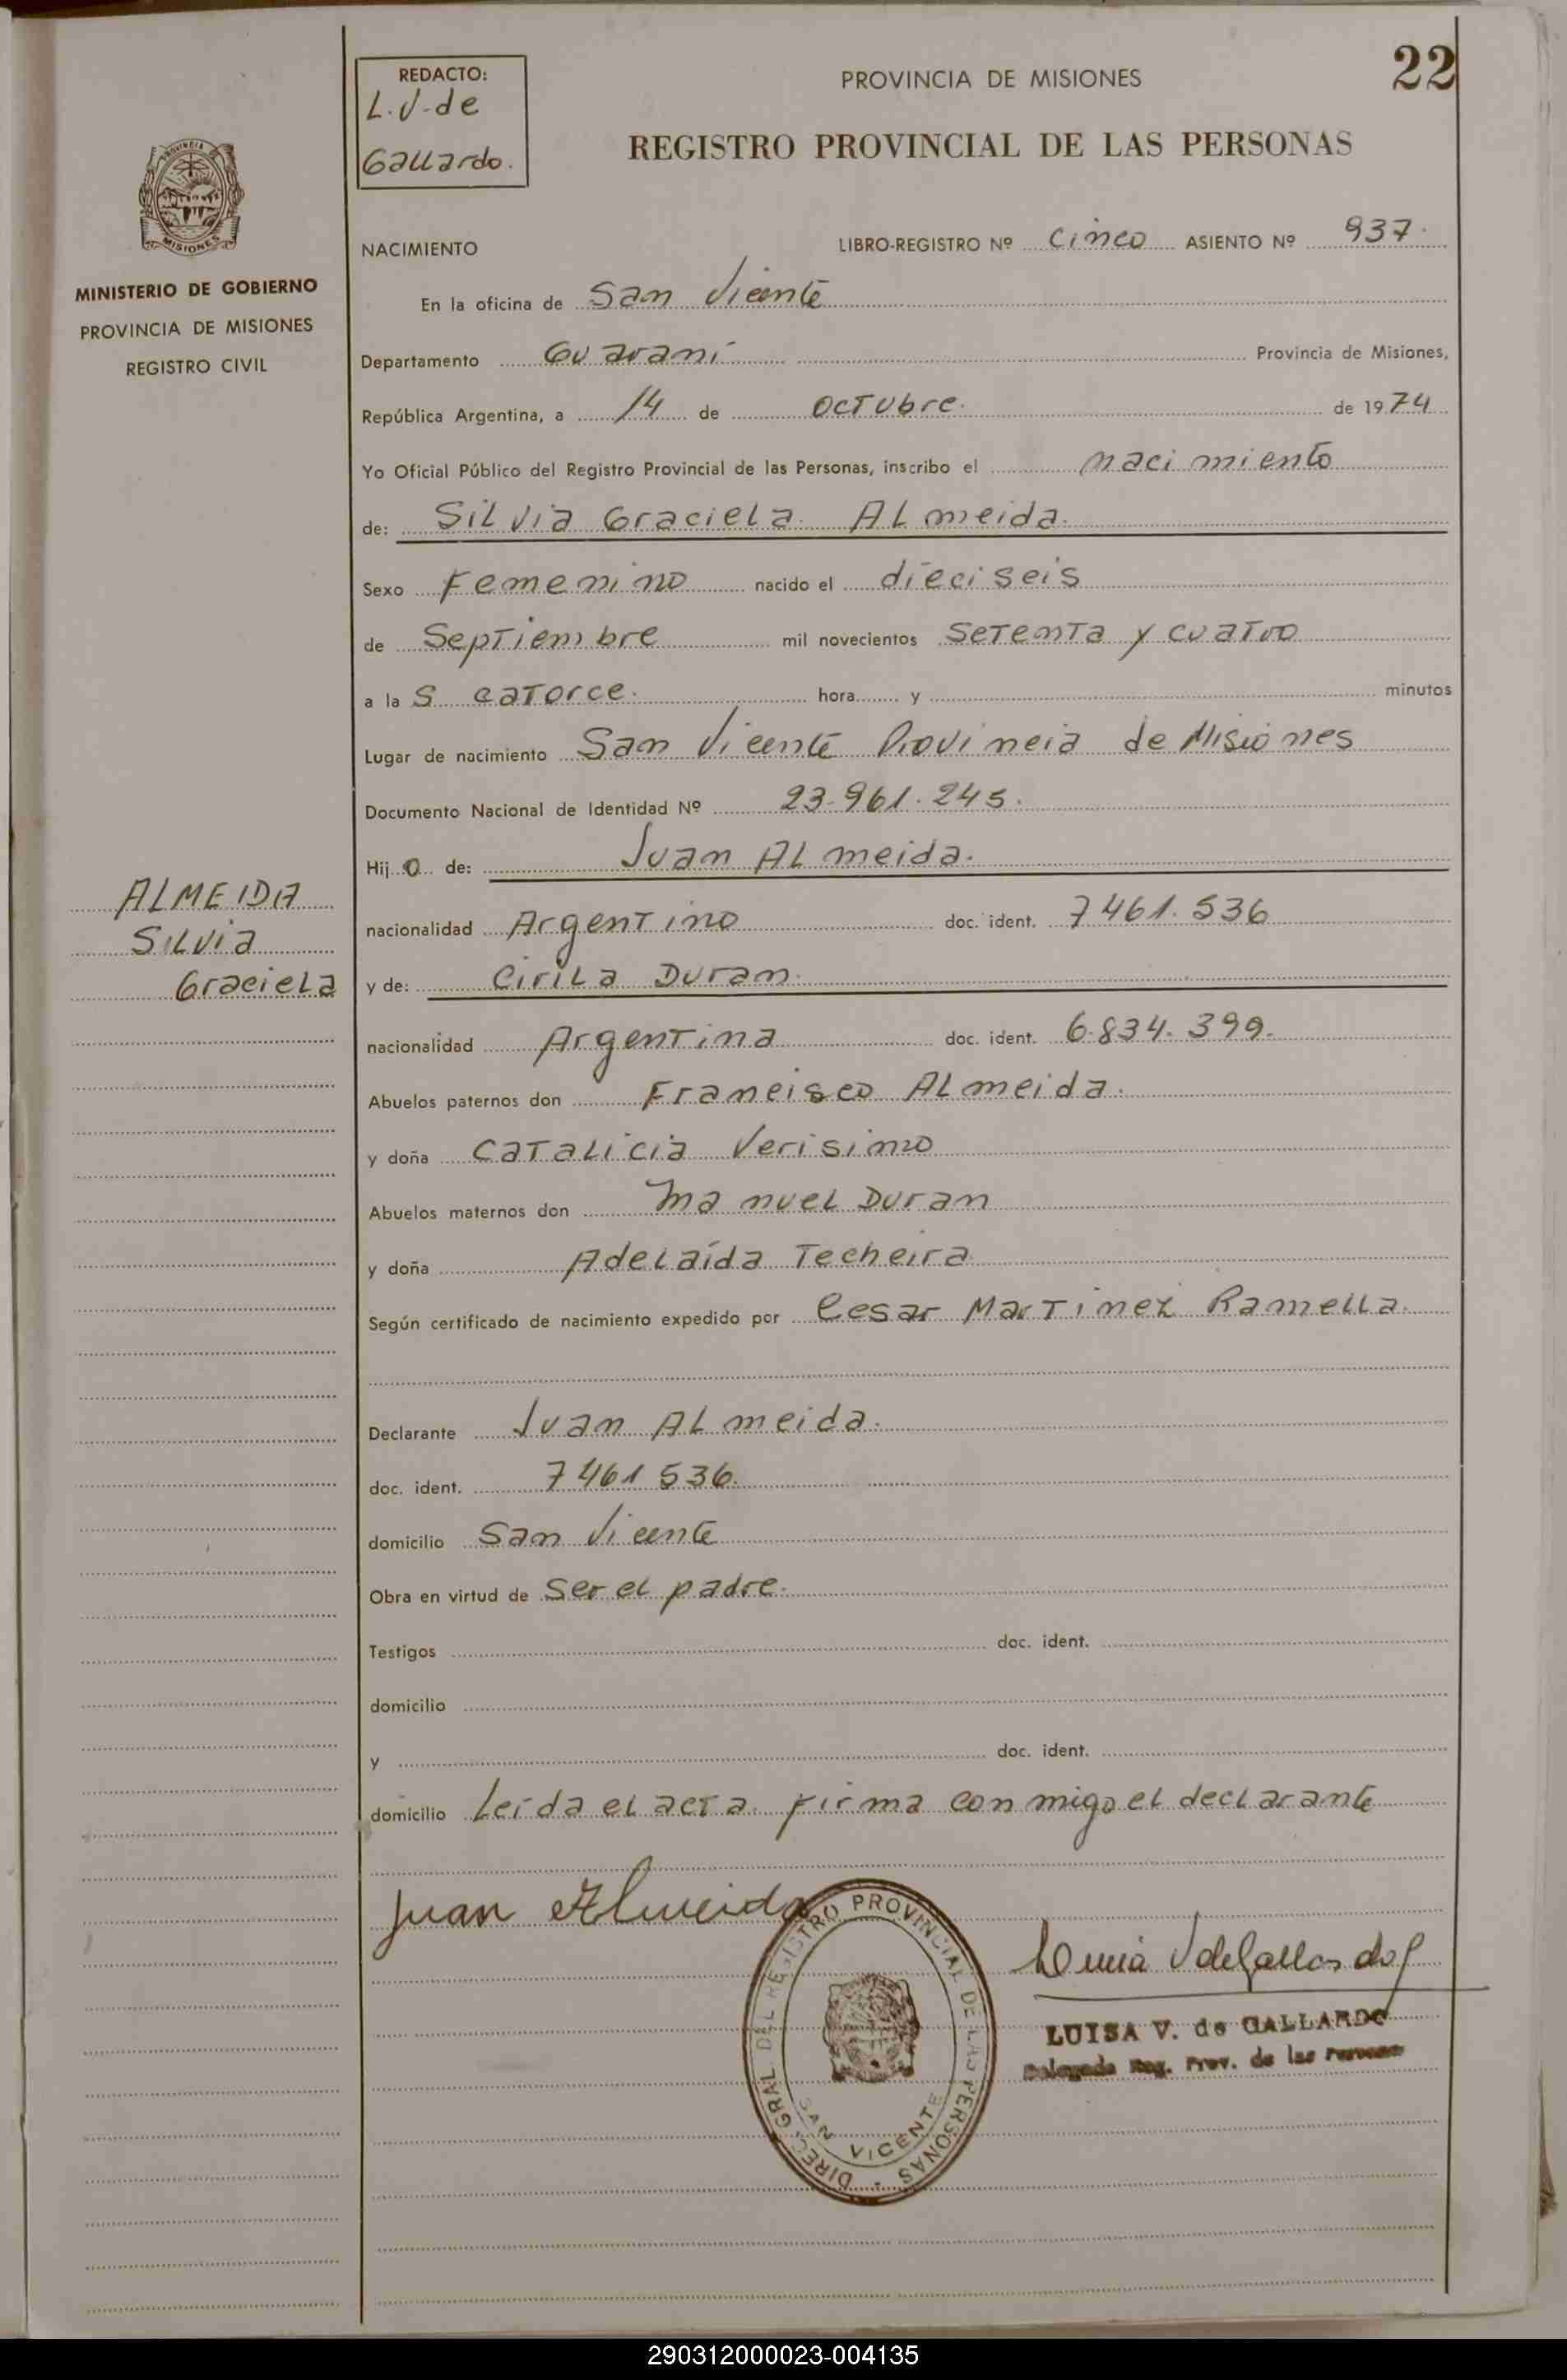 22
REDACTO:
L.V. de
Gallardo.
PROVINCIA DE MISIONES
REGISTRO PROVINCIAL DE LAS PERSONAS
PROVINCIA
MISIONES
MINISTERIO DE GOBIERNO
PROVINCIA DE MISIONES
REGISTRO CIVIL
NACIMIENTO
LIBRO-REGISTRO Nº cinco ASIENTO Nº 937.
En la oficina de San Vicente
Departamento Guaraní Provincia de Misiones,
República Argentina, a 14 de octubre. de 1974
Yo Oficial Público del Registro Provincial de las Personas, inscribo el nacimiento
de: Silvia Graciela Almeida.
Sexo Femenino nacido el dieciseis
de Septiembre mil novecientos setenta y cuatro
a las catorce. hora y minutos
Lugar de nacimiento San Vicente Provincia de Misiones
Documento Nacional de Identidad Nº 23.961.245.
Hijo de: Juan Almeida.
nacionalidad Argentino doc. ident. 7461.536
y de: Cirila Duran.
nacionalidad Argentina doc. ident. 6.834.399.
Abuelos paternos don Francisco Almeida.
y doña Catalicia Verisimo
Abuelos maternos don Manuel Duran
y doña Adelaída Techeira
Según certificado de nacimiento expedido por Cesar Martinez Ramella.
Declarante Juan Almeida.
doc. ident. 7461536.
domicilio San Vicente
Obra en virtud de ser el padre.
Testigos doc. ident.
domicilio
y doc. ident.
domicilio Leída el acta firma conmigo el declarante
ALMEIDA
Silvia
Graciela
Juan Almeida
DIREC. GRAL. DEL REGISTRO PROVINCIAL DE LAS PERSONAS
SAN VICENTE
V de Gallardo
LUISA V. de GALLARDO
Delegada Reg. Prov. de las Personas
290312000023-004135